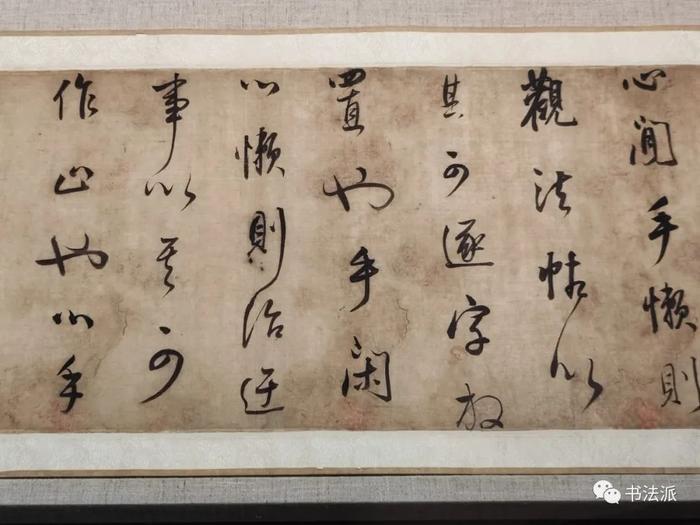 心閒手懶則
觀法帖以
其可逐字放
置也手閑
心懶則治迂
事以其可
作止也心手
书法派